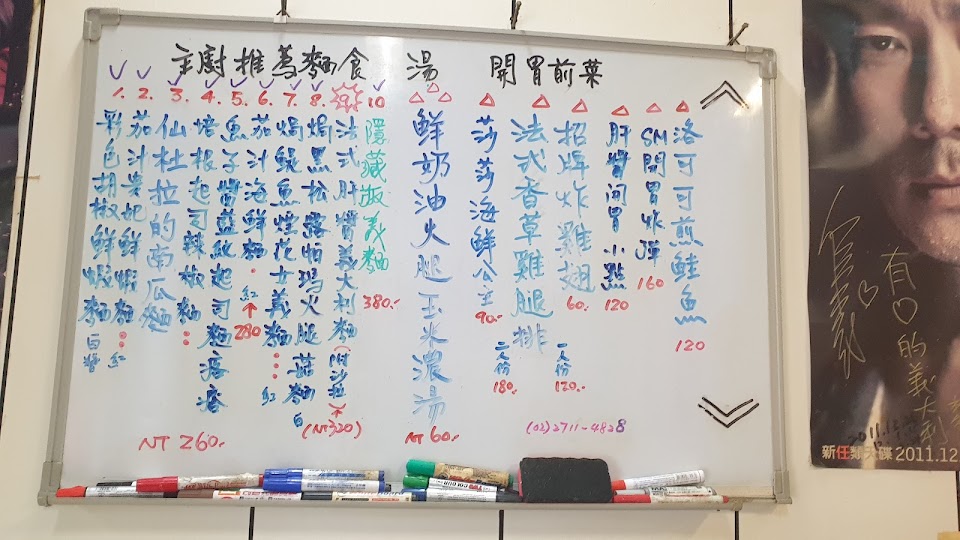 主廚推薦麵食
1. 彩色胡椒鮮蝦麵 白醬
2. 茄汁貴妃鮮蝦麵 紅
3. 仙杜拉的南瓜麵
4. 培根起司辣椒麵
5. 魚子醬藍紋起司麵 痞痞
6. 茄汁海鮮麵 紅↑280
7. 焗鯷魚煙花女義麵 紅
8. 焗黑松露帕瑪火腿菇麵 白
法式肝醬義大利麵(附沙拉)
(NT320)
10 隱藏版義麵
380.-
NT 260.-
湯
鮮奶油火腿玉米濃湯
NT 60.-
開胃前菜
莎莎海鮮公主
90.-
法式香草雞腿排
二人份
180.-
招牌炸雞翅
60.-
一人份
120.-
肝醬開胃小點
120
SM開胃炸彈
160
洛可可煎鮭魚
120
(02)2711-4828
有
的義大利
2011.12
新任賢大碟 2011.12